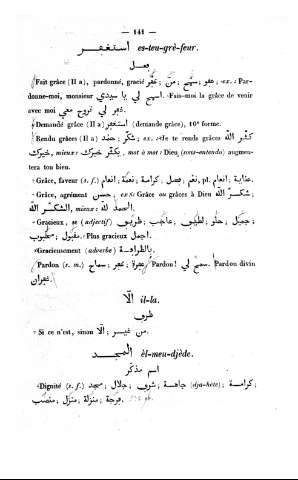 — 141 —
استغفر es-teu-grè-feur.
فعل
Fait grâce (Il a), pardonné, gracié عفو ; من ; سمح ; غفر, ex.: Par-
donne-moi, monsieur اسمح لي يا سيدي. Fais-moi la grâce de venir
avec moi معي
Demandé grâce (Il a) استغفر (demander grâce), 10e forme.
Rendu grâces (Il a) شكر ; حمد, ex.: Je te rends grâces كثر الله
خيرك, mieux: يكثر خيرك, mot à mot: Dieu, (sous-entendu) augmen-
tera ton bien.
Grâce, faveur (s. f.) عناية ; إنعام, pl. نعم ; فضل ; كرامة ; نعمة ; إنعام.
Grâce, agrément حسن, ex.: Grâce ou grâces à Dieu شكر الله ;
الشكر الله, mieux: الحمد لله.
Gracieux, se (adjectif) ظريف ; عاجب ; لطيف ; حلو ; جميل ;
مقبول ; محبوب. Plus gracieux أجمل.
Gracieusement (adverbe) بالظرافة.
Pardon (s. m.) سماح ; عفر ; عفو. Pardon! سمح لي. Pardon divin
غفران
إلّا il-la.
ظرف
Si ce n'est, sinon من غير ; إلّا.
المجد èl-meu-djède.
اسم مذكر
Dignité (s. f.) مجد ; جلال ; شرف ; جاهة (dja-hète) ; كرامة ;
درجة ; منزلة ; منزل ; منصب.